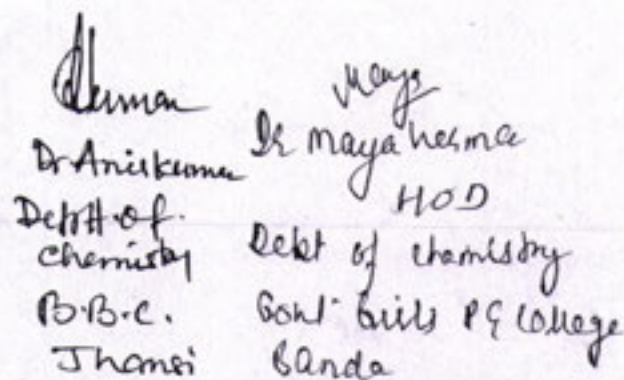 Dr Anilkumar
Deptt. of.
Chemistry
B.B.C.
Jhansi
Maya
Dr Maya Verma
HOD
Dept of chemistry
Govt Girls PG College
Banda